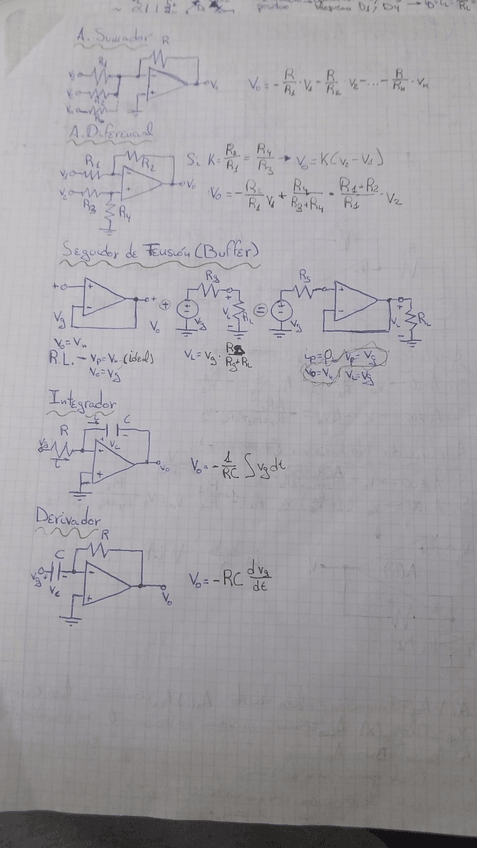 D1, D4
A. Sumador
R
R1
V1
V2
R2
V3
Vo
Vo = - R/R1 · V1 - R/R2 · V2 - ... - R/Rn · Vn
A. Diferencial
R1
R2
V1
V2
R3
R4
Vo
Si K = R2/R1 = R4/R3 → Vo = K(V2 - V1)
Vo = - R2/R1 V1 + R4/(R3+R4) · (R1+R2)/R1 · V2
Seguidor de Tensión (Buffer)
+ Rg Rg
Vg Vo + Vg VL RL = Vg VL RL
Vo = Vn
R.L. - Vp = Vn (ideal)
Vo = Vg
VL = Vg · RL/(Rg+RL)
Vp = Vg
Vo = Vn VL = Vg
Integrador
R
i
C
Vg
VC
i
Vo
Vo = - 1/RC ∫ Vg dt
Derivador
C
R
Vg
Vc
Vo
Vo = - RC dVg/dt